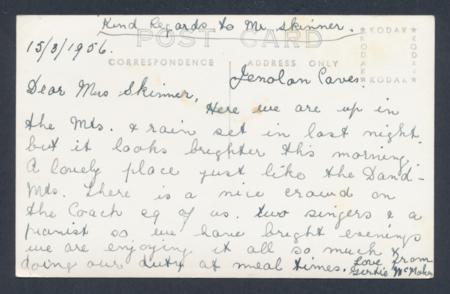 Kind Regards to Mr Skinner.
POST CARD
15/3/1956.
CORRESPONDENCE
ADDRESS ONLY
KODAK
KODAK
KODAK
KODAK
Jenolan Caves.
Dear Mrs Skinner,
Here we are up in
the Mts. & rain set in last night.
but it looks brighter this morning.
A lovely place just like the Dand-
Mts. There is a nice crowd on
the Coach 29 of us. two singers & a
pianist so we have bright evenings
we are enjoying it all so much &
doing our duty at meal times.
Love from
Gertie